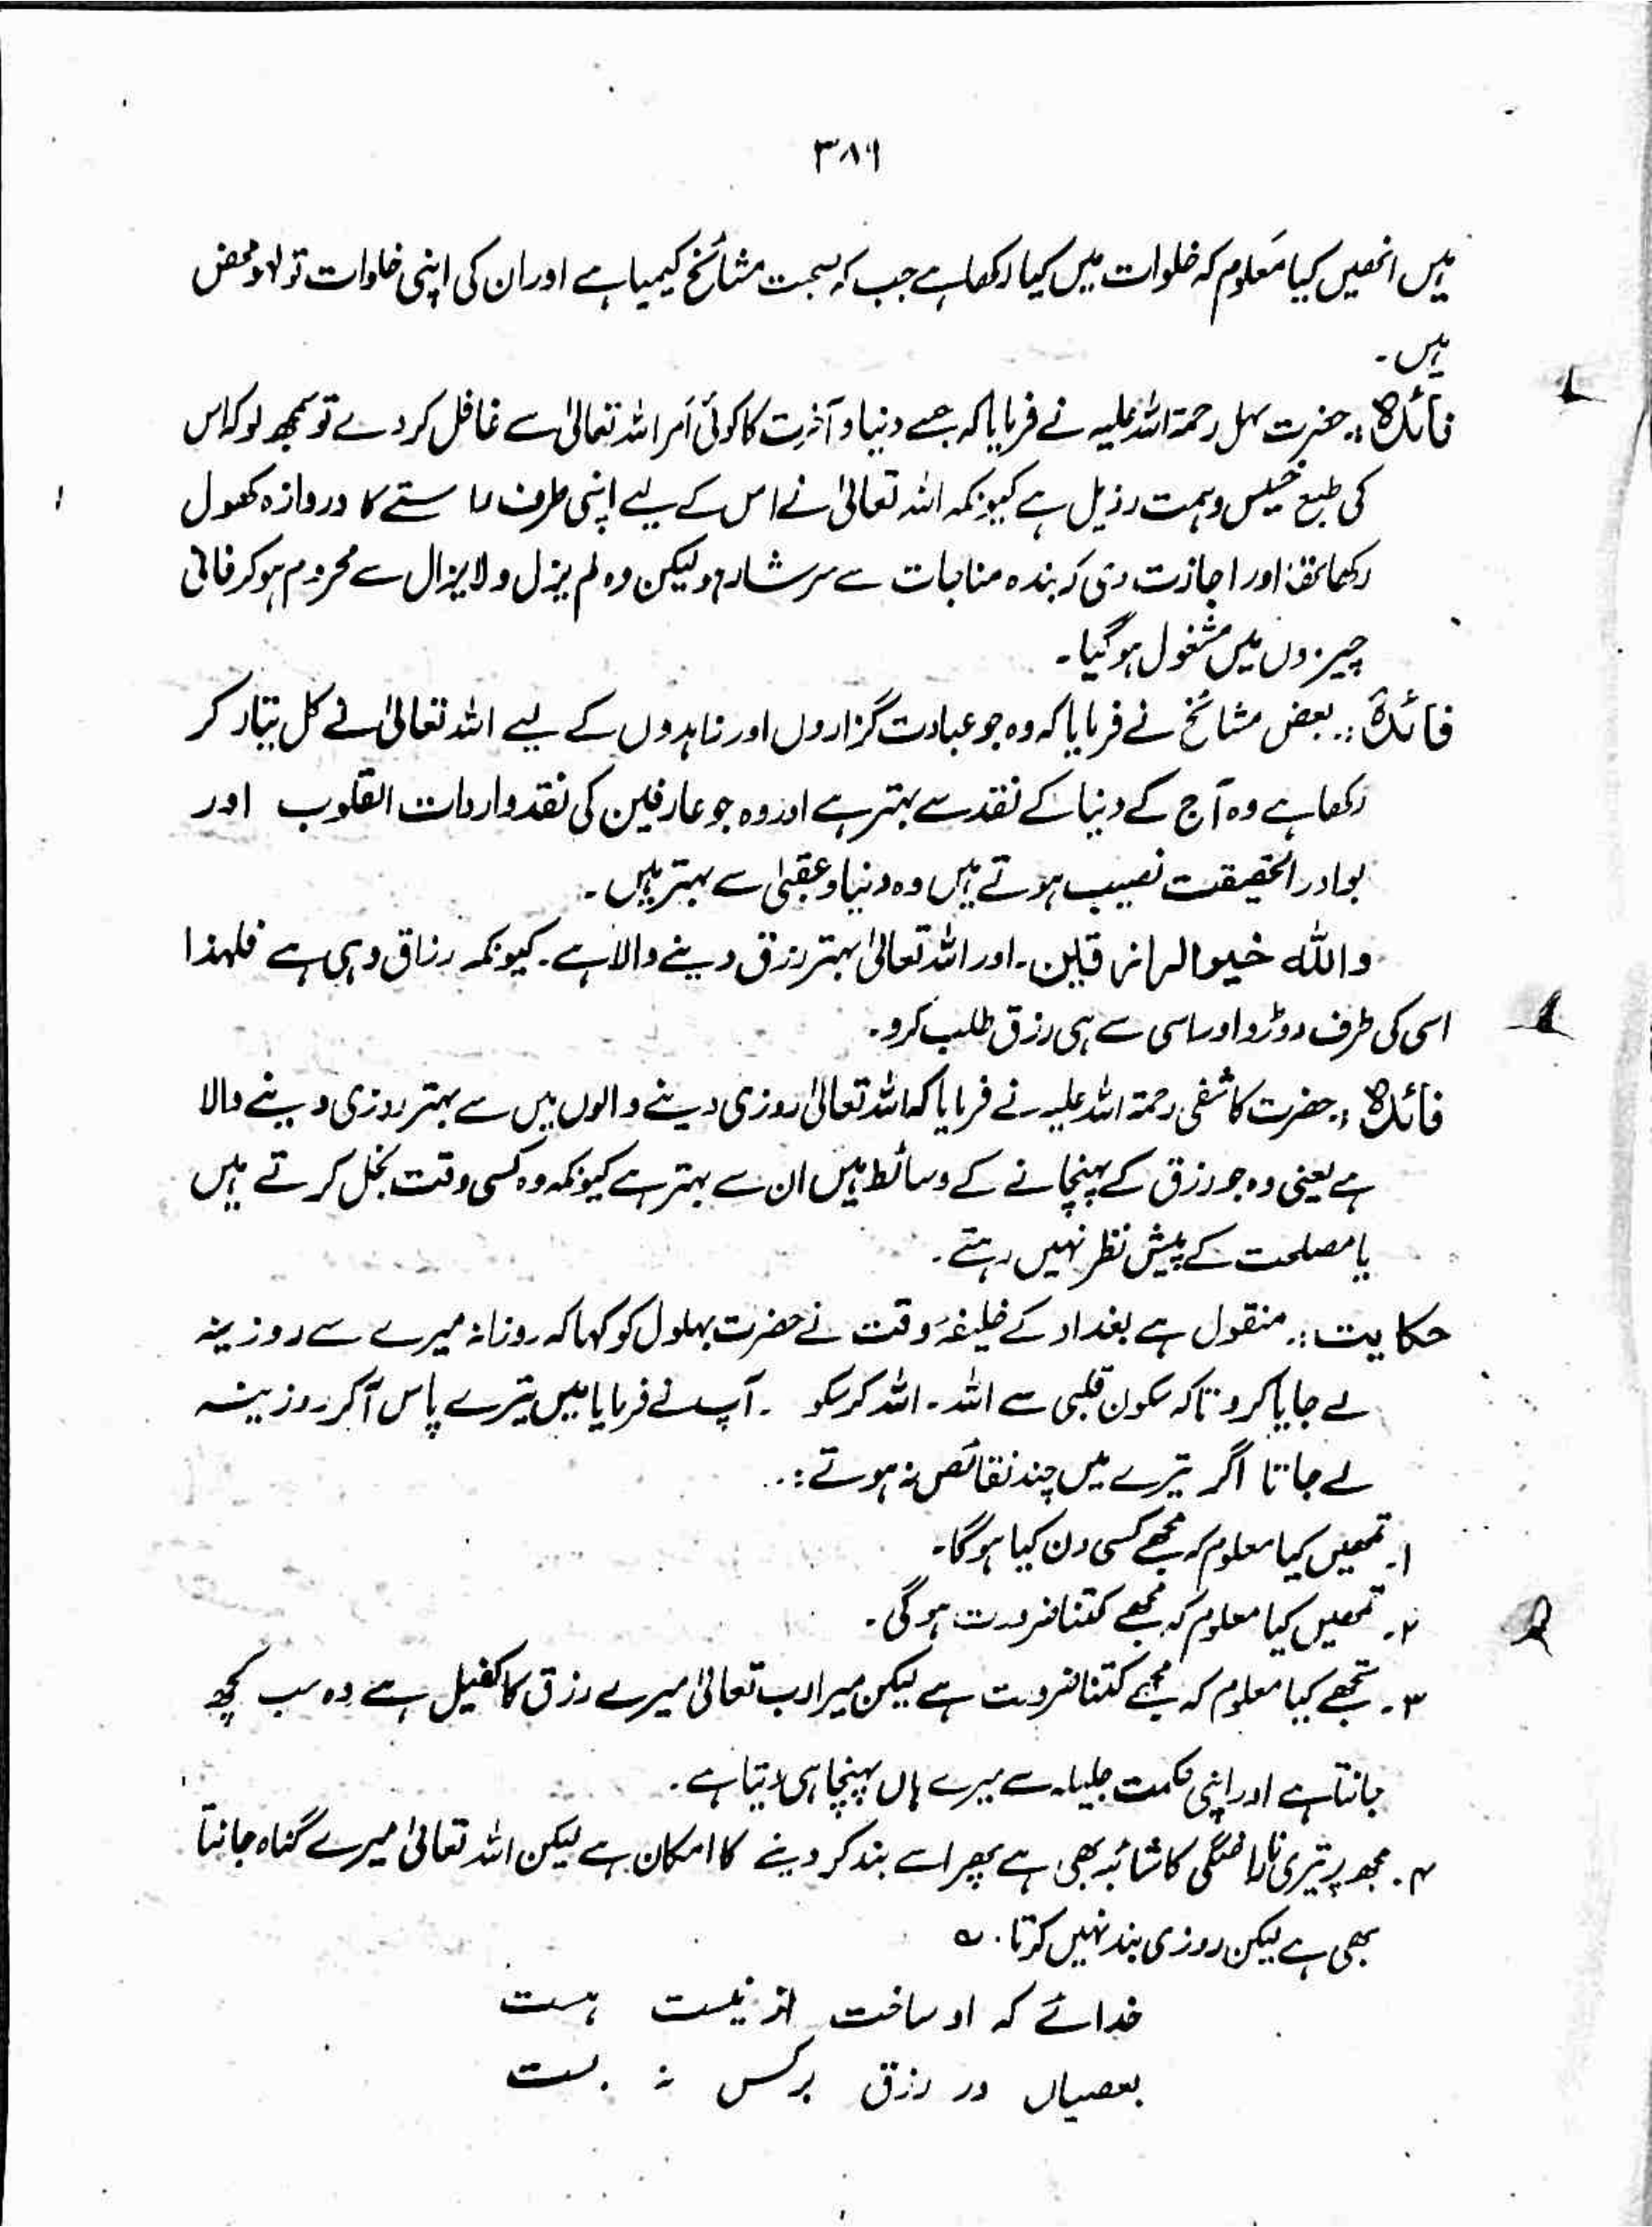 ۳۸۹
ہیں انھیں کیا معلوم کہ خلوات میں کیا رکھا ہے جب کہ صحبت مشائخ کیمیا ہے اور ان کی اپنی خلوات تو لاؤ محض
ہیں۔
فائدہ :۔ حضرت سہل رحمۃ اللہ علیہ نے فرمایا کہ جسے دنیا و آخرت کا کوئی اَمر اللہ تعالیٰ سے غافل کر دے تو سمجھ لو کہ اس
کی طبع خسیس و ہمت رذیل ہے کیونکہ اللہ تعالیٰ نے اس کے لیے اپنی طرف راستے کا دروازہ کھول
رکھا تھا اور اجازت دی کہ بندہ مناجات سے سرشار ہو لیکن وہ لم یزل و لایزال سے محروم ہو کر فانی
چیزوں میں مشغول ہو گیا۔
فائدہ :۔ بعض مشائخ نے فرمایا کہ وہ جو عبادت گزاروں اور زاہدوں کے لیے اللہ تعالیٰ نے کل تیار کر
رکھا ہے وہ آج کے دنیا کے نقد سے بہتر ہے اور وہ جو عارفین کی نقد واردات القلوب اور
بوادر الحقیقت نصیب ہوتے ہیں وہ دنیا و عقبیٰ سے بہتر ہیں۔
واللہ خیر الرازقین۔ اور اللہ تعالیٰ بہتر رزق دینے والا ہے۔ کیونکہ رزاق وہی ہے فلہٰذا
اسی کی طرف دوڑو اور اسی سے ہی رزق طلب کرو۔
فائدہ :۔ حضرت کاشفی رحمۃ اللہ علیہ نے فرمایا کہ اللہ تعالیٰ روزی دینے والوں میں سے بہتر روزی دینے والا
ہے یعنی وہ جو رزق کے پہنچانے کے وسائط ہیں ان سے بہتر ہے کیونکہ وہ کسی وقت بخل کرتے ہیں
یا مصلحت کے پیش نظر نہیں رہتے۔
حکایت :۔ منقول ہے بغداد کے خلیفۂ وقت نے حضرت بہلول کو کہا کہ روزانہ میرے سے روزینہ
لے جایا کرو تاکہ سکون قلبی سے اللہ۔ اللہ کر سکو ۔ آپ نے فرمایا میں تیرے پاس آکر روزینہ
لے جاتا اگر تیرے میں چند نقائص نہ ہوتے :۔
۱۔ تمھیں کیا معلوم کہ مجھے کسی دن کیا ہوگا۔
۲۔ تمھیں کیا معلوم کہ مجھے کتنا ضرورت ہوگی۔
۳۔ تجھے کیا معلوم کہ مجھے کتنا ضرورت ہے لیکن میرا رب تعالیٰ میرے رزق کا کفیل ہے وہ سب کچھ
جانتا ہے اور اپنی حکمت جلیلہ سے میرے ہاں پہنچا ہی دیتا ہے۔
۴۔ مجھ پر تیری ناراضگی کا شائبہ بھی ہے پھر اسے بند کر دینے کا امکان ہے لیکن اللہ تعالیٰ میرے گناہ جانتا
بھی ہے لیکن روزی بند نہیں کرتا۔ ؎
خدائے کہ او ساخت از نیست ہست
بعصیاں در رزق برکس نہ بست